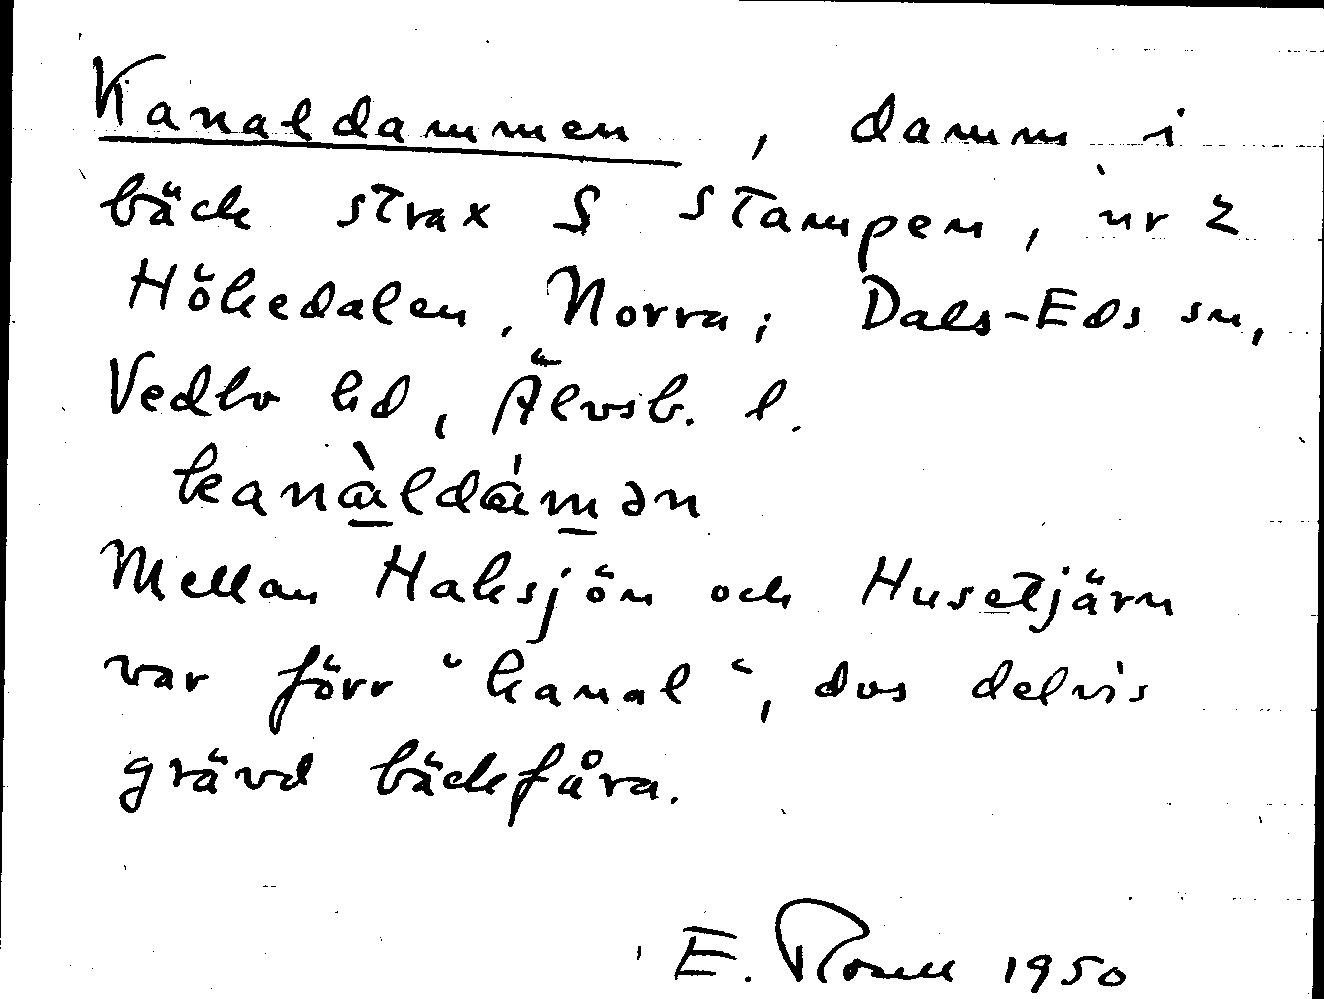 Kanaldammen, damm i
bäck strax S Stampen, nr 2
Hökedalen, Norra; Dals-Eds sn,
Vedbo hd, Älvsb. l.
kanàldámən
Mellan Haksjön och Husetjärn
var förr "kanal", dvs delvis
grävd bäckfåra.
E. 1950